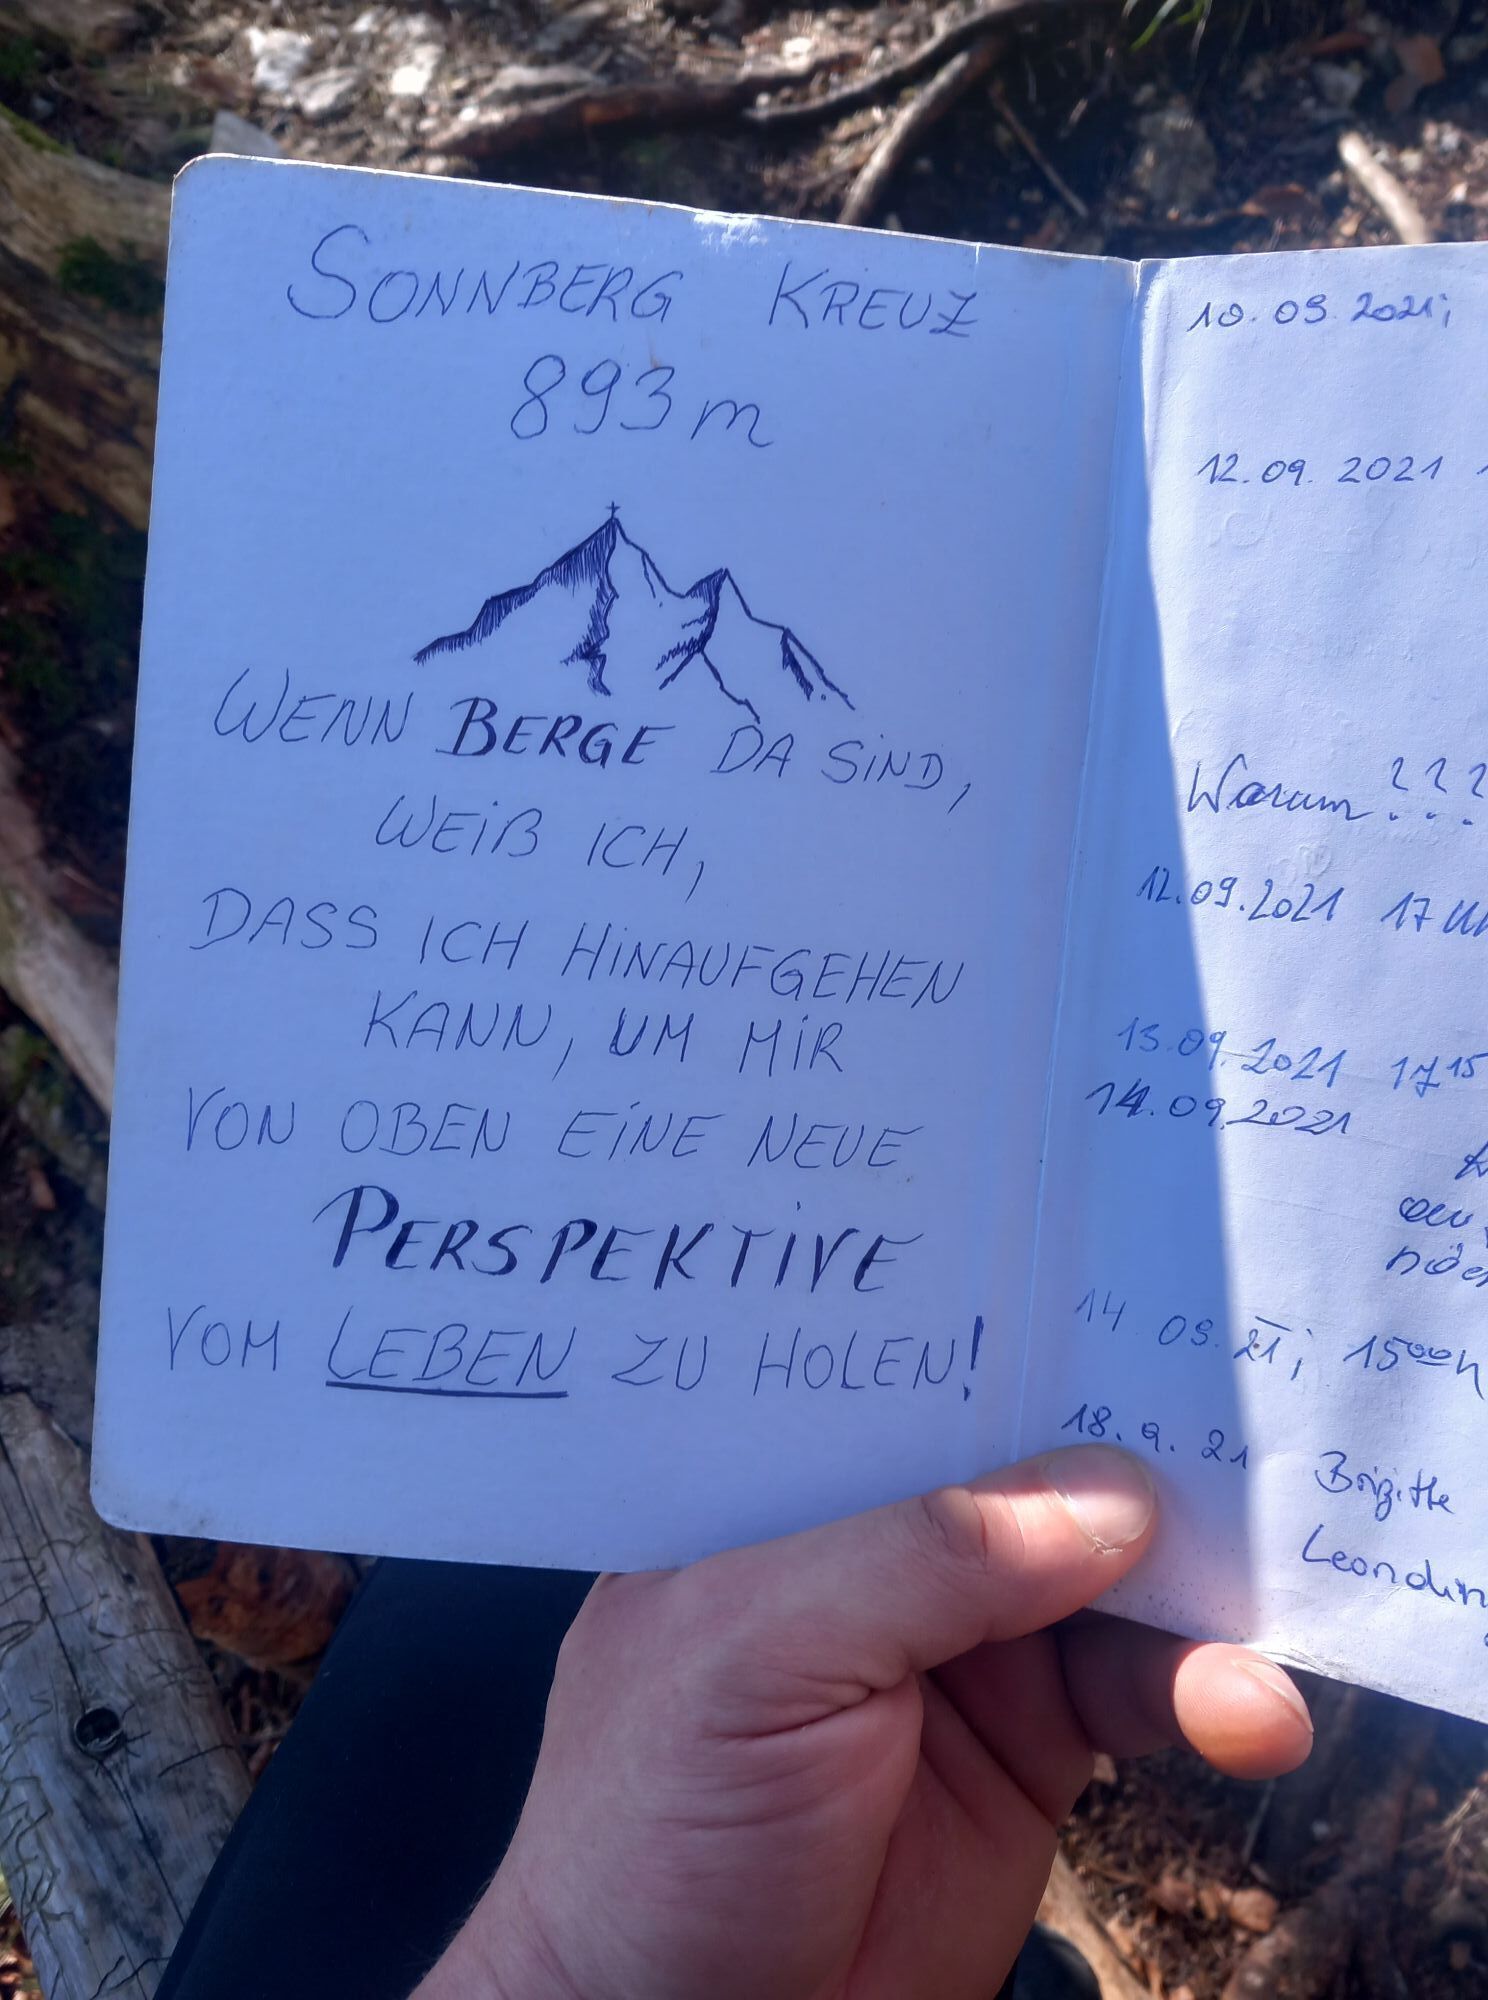 SONNBERG KREUZ
893m
WENN BERGE DA SIND,
WEIß ICH,
DASS ICH HINAUFGEHEN
KANN, UM MIR
VON OBEN EINE NEUE
PERSPEKTIVE
VOM LEBEN ZU HOLEN!
10.09.2021;
12.09.2021
Warum???
12.09.2021 17
13.09.2021 17¹⁵
14.09.2021
14 09.21; 15⁰⁰h
18.9.21 Brigitte